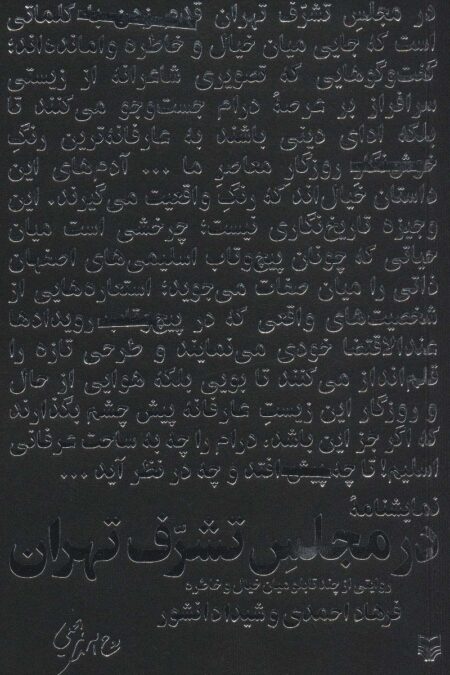 در مجلسِ تشرّف تهران قدم زدن به کلماتی
است که جایی میان خیال و خاطره وامانده‌اند؛
گفت‌وگوهایی که تصویری شاعرانه از زیستی
سرافراز بر عرصهٔ درام جست‌وجو می‌کنند تا
بلکه ادای دینی باشند به عارفانه‌ترین رنگ
روزگار معاصر ما ... آدم‌های این
داستان خیال‌اند که رنگِ واقعیت می‌گیرند. این
وجیزه تاریخ‌نگاری نیست؛ چرخشی است میان
حیاتی که چونان پیچ‌وتاب اسلیمی‌های اصفهان
ذاتی را میان صفات می‌جوید؛ استعاره‌هایی از
شخصیت‌های واقعی که در پیچ‌وتاب رویدادها
عندالاقتضا خودی می‌نمایند و طرحی تازه را
قلم‌انداز می‌کنند تا بویی بلکه هوایی از حال
و روزگار این زیستِ عارفانه پیش چشم بگذارند
که اگر جز این باشد، درام را چه به ساحت عرفانی
اسلیم! تا چه پیش افتد و چه در نظر آید ...
نمایشنامهٔ
در مجلسِ تشرّف تهران
روایتی از چند تابلو میان خیال و خاطره
فرهاد احمدی و شیدا دانشور